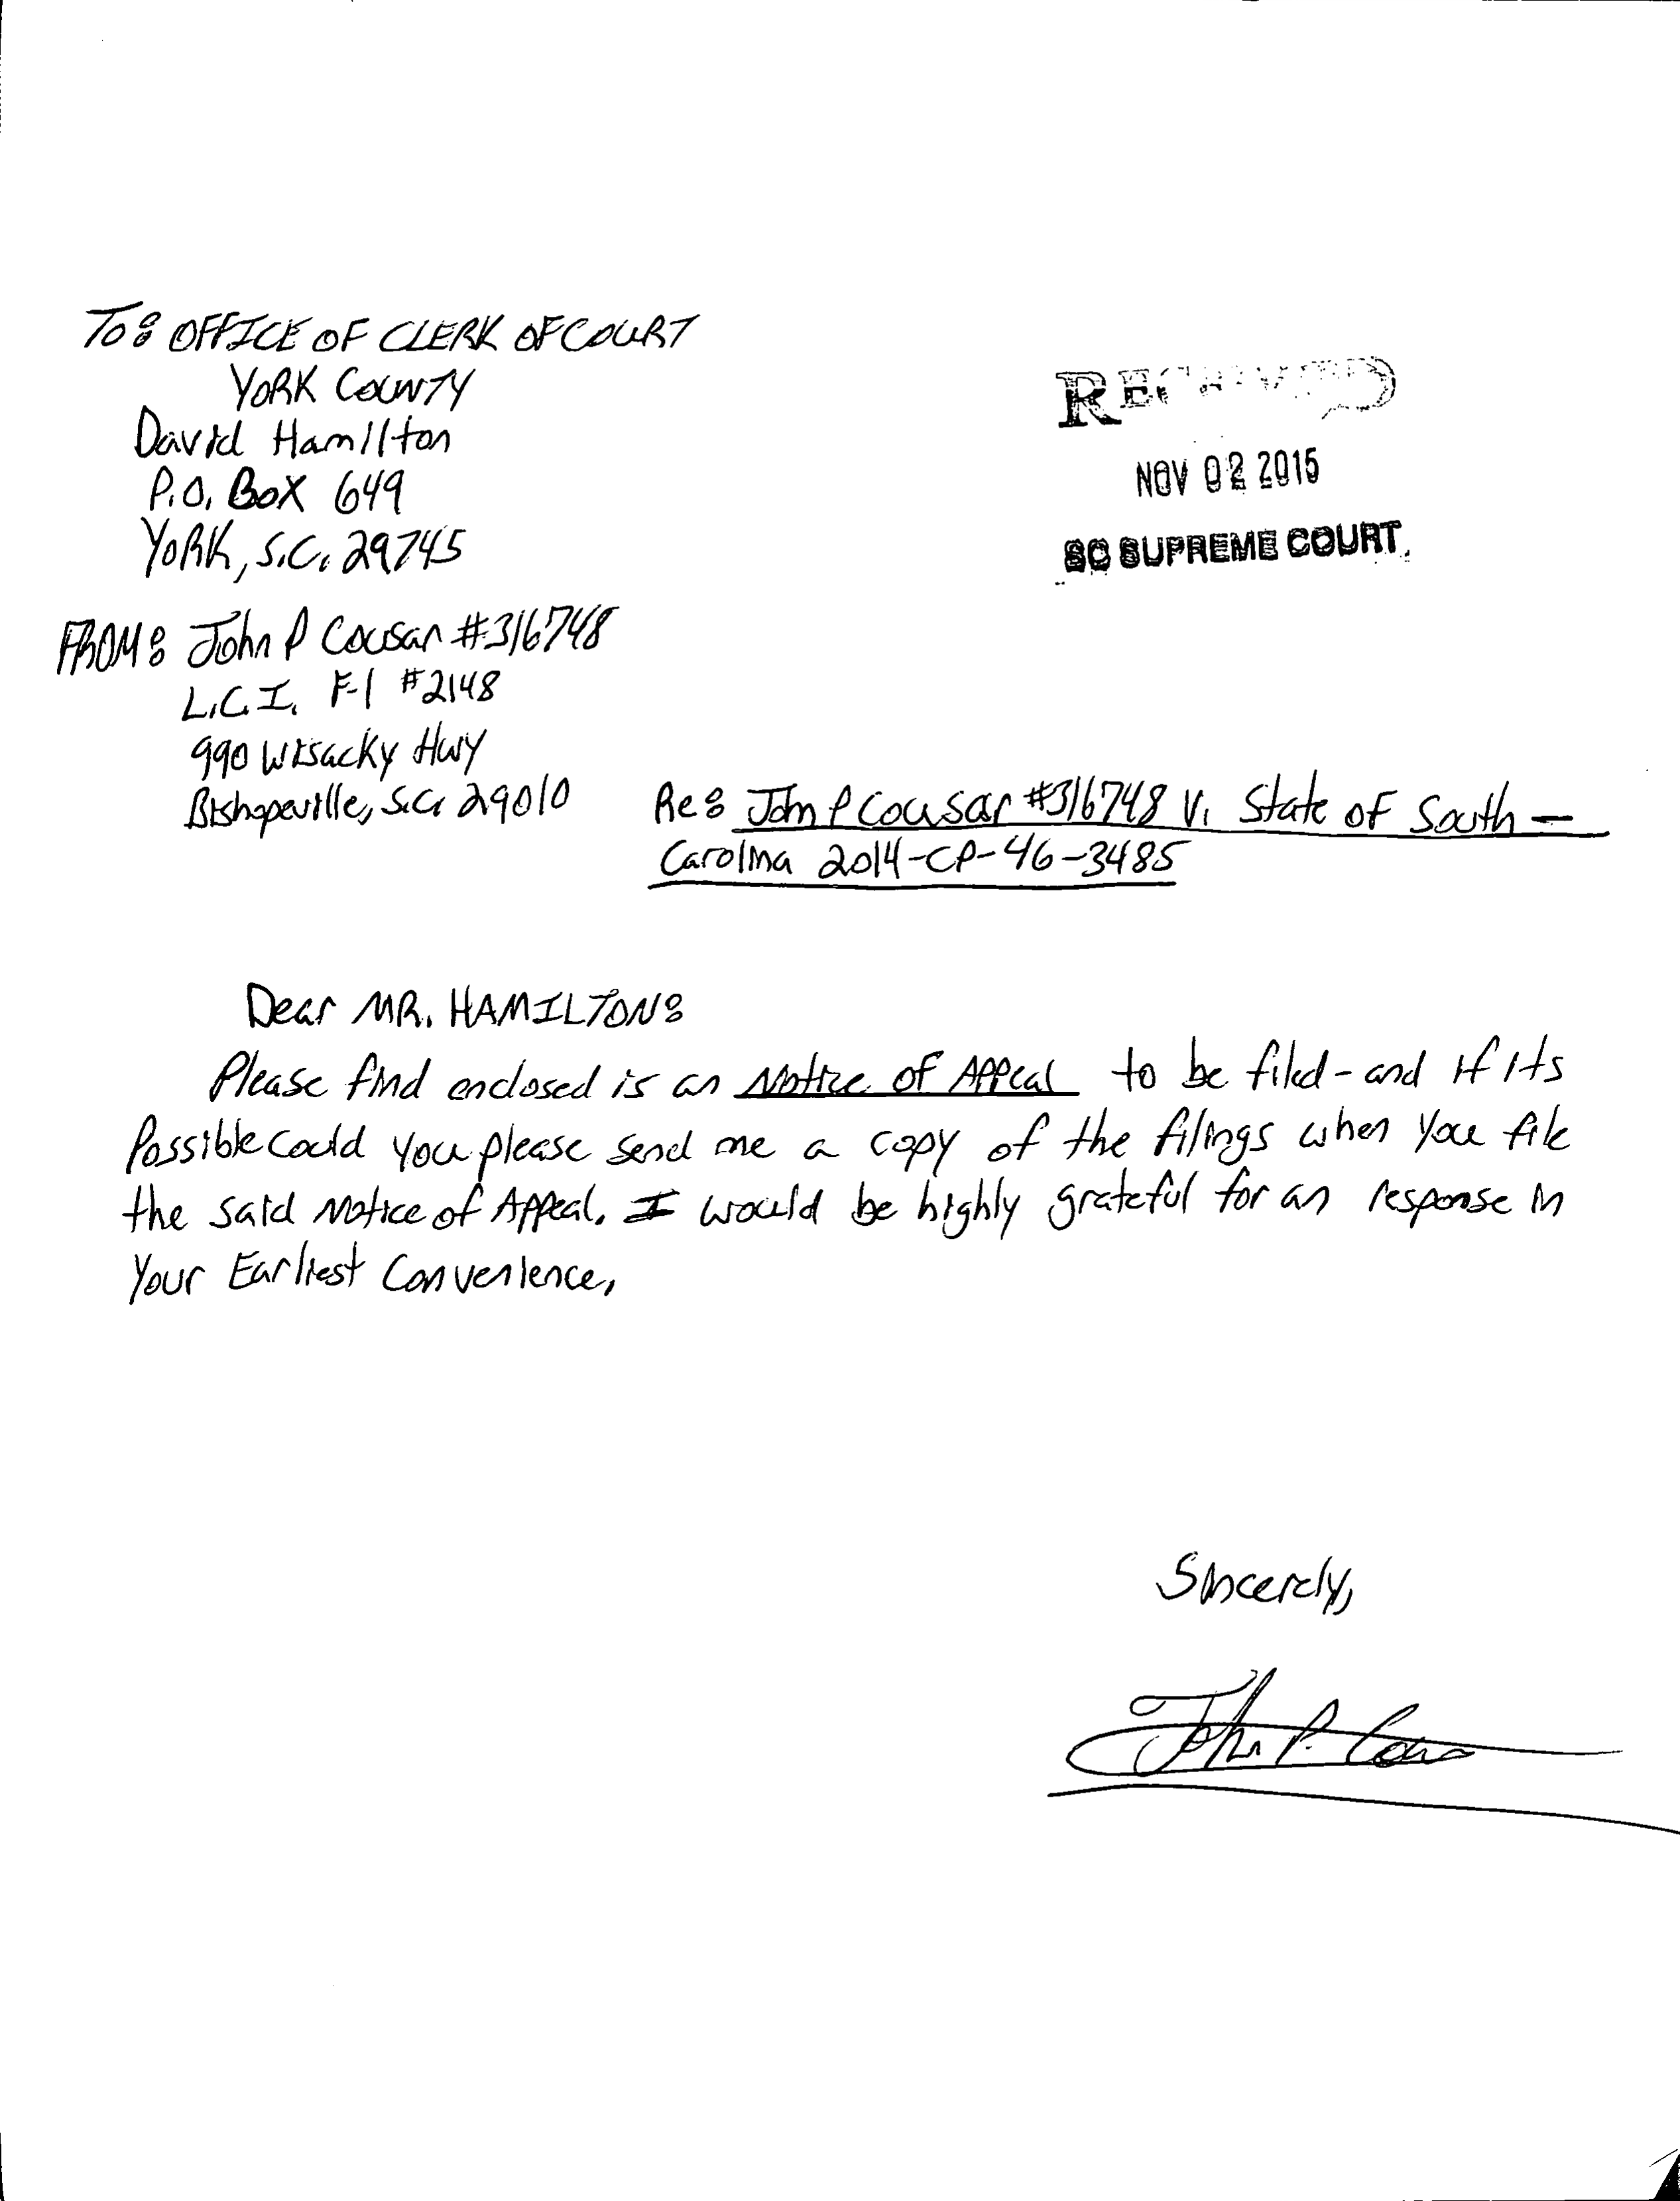 To: OFFICE OF CLERK OF COURT
YORK COUNTY
David Hamilton
P.O. BOX 649
YORK, S.C. 29745
RECEIVED
NOV 02 2015
SC SUPREME COURT
FROM: John P Cousar #316748
L.C.I. F-1 #2148
990 Wisacky Hwy
Bishopeville, S.C. 29010
Re: John P Cousar #316748 V. State of South –
Carolina 2014-CP-46-3485
Dear MR. HAMILTON:
Please find enclosed is an Notice of Appeal to be filed - and if its
Possible could you please send me a copy of the filings when you file
the said Notice of Appeal. I would be highly grateful for an response in
Your Earliest Convenience,
Sincerely,
John P. Cousar